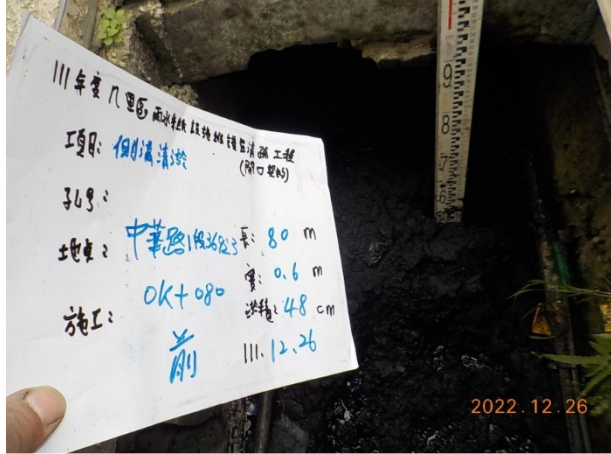 111年度八里區雨水系統設施維護暨清疏工程
(開口契約)
項目: 側溝清淤
孔号:
地點: 中華路1段36巷3 長: 80 m
寬: 0.6 m
0K+080 淤積: 48 cm
施工: 前 111.12.26
9
8
7
6
2022.12.26